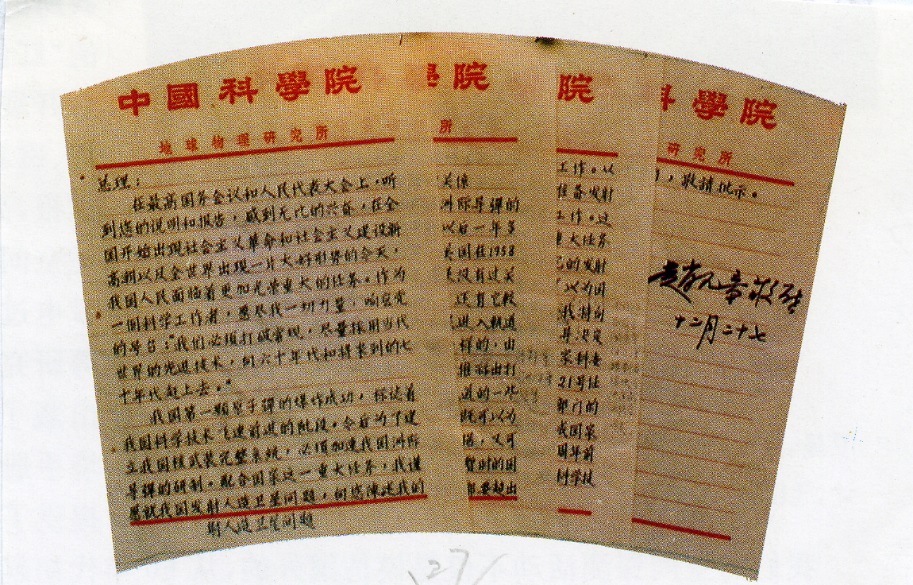 中國科學院
地球物理研究所
总理：
在最高国务会议和人民代表大会上，听
到您的说明和报告，感到无比的兴奋，在全
国开始出现社会主义革命和社会主义建设新
高潮以及全世界出现一片大好形势的今天，
我国人民面临着更加光荣重大的任务。作为
一个科学工作者，愿尽我一切力量，响应党
的号召："我们必须打破常规，尽量采用当代
世界的先进技术，向六十年代和将要到的七
十年代赶上去。"
我国第一颗原子弹的爆炸成功，标志着
我国科学技术飞速前进的阶段。今后为了建
立我国核武装完整系统，必须加速我国洲际
导弹的研制。配合国家这一重大任务，我谨
愿就我国发射人造卫星问题，向您陈述我的
射人造卫星问题
學院
所
关系
洲际导弹的
以后一年多
美国在1958
没有过关
还有它较
进入轨道
样的，由
推器出打
道的一些
既可以为
，又可
的国
要超出
院
工作。以
准备发射
工作。这
重大任务
的发射
以为因
我特向
并决定
家科委
21号任
部门的
我国第
周年前
科学技
科學院
研究所
，敬请批示。
赵九章敬上
十二月二十七
27